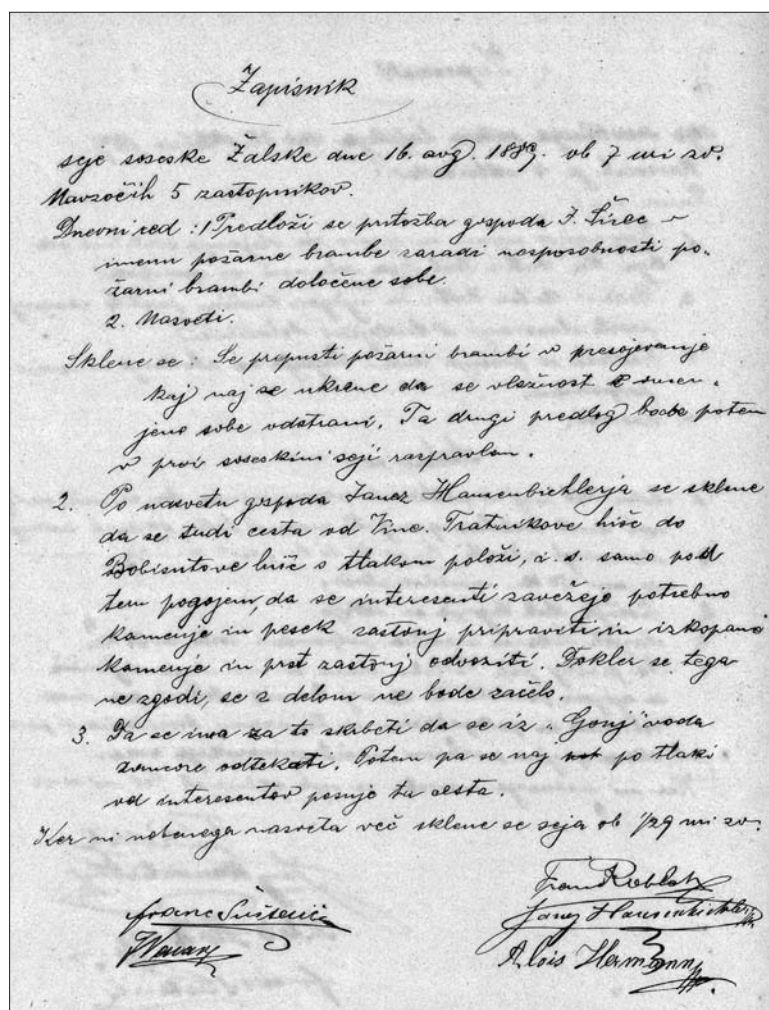 Zapisnik
seje soseske Žalske dne 16. avg. 1889. ob 7 uri zv.
Navzočih 5 zastopnikov.
Dnevni red : 1 Predloži se pritožba gospoda J. Širec v
imenu požarne brambe zaradi nesposobnosti po-
žarni brambi določene sobe.
2. Nasveti.
Sklene se : Se prepusti požarni brambi v presojevanje
kaj naj se ukrene da se vlažnost v omen-
jene sobe odstrani. Ta drugi predlog bode potem
v prvi soseskini seji raspravlan.
2. Po nasvetu gospoda Janez Hausenbichlerja se sklene
da se tudi cesta od Vinc. Tratnikove hiše do
Bobisutove hiše s tlakom položi, i. s. samo pod
tem pogojem, da se interesenti zavežejo potrebno
kamenje in pesek zastonj pripraviti in izkopano
kamenje in prst zastonj odvoziti. Dokler se tega
ne zgodi, se z delom ne bode začelo.
3. Da se ima za to skrbeti da se iz „Gonj" voda
zamore odtekati. Potem pa se naj po tlaki
od interesentov posuje ta cesta.
Ker ni nobenega nasveta več sklene se seja ob 1/2 9 uri zv.
Franc Roblek
Franc Šušteršič
Janez Hausenbichler
Alois Hermann